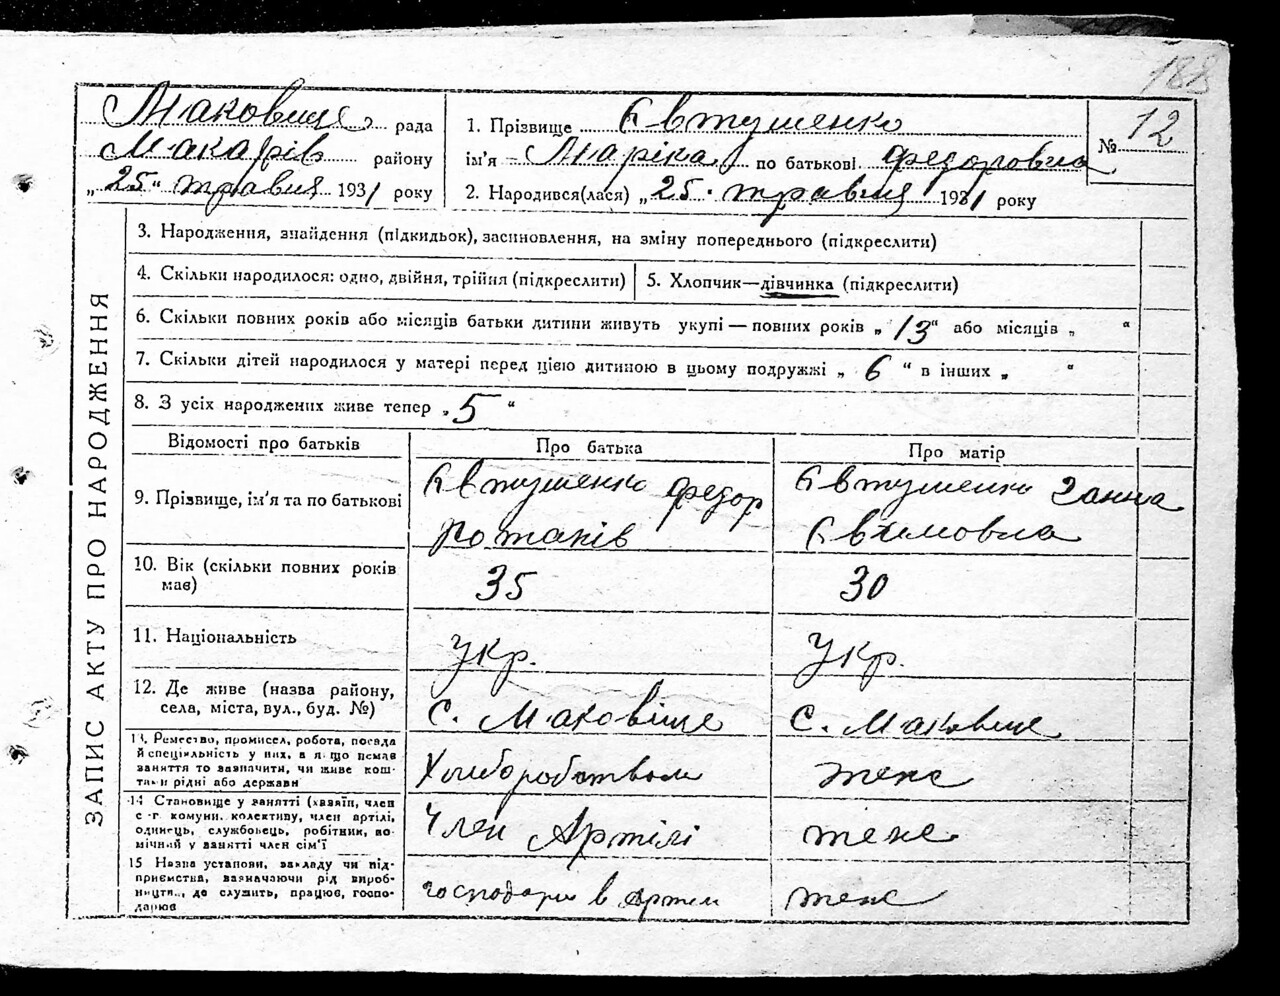 188
Маковище рада
Макарів району
„25“ травня 1931 року
1. Прізвище Євтушенко
ім'я Маріка по батькові Федоровна
2. Народився(лася) „25. травня 1931 року
№ 12
ЗАПИС АКТУ ПРО НАРОДЖЕННЯ
3. Народження, знайдення (підкидьок), засиновлення, на зміну попереднього (підкреслити)
4. Скільки народилося: одно, двійня, трійня (підкреслити)
5. Хлопчик—дівчинка (підкреслити)
6. Скільки повних років або місяців батьки дитини живуть укупі — повних років „13“ або місяців „ “
7. Скільки дітей народилося у матері перед цією дитиною в цьому подружжі „6“ в інших „ “
8. З усіх народжених живе тепер „5“
Відомості про батьків
Про батька
Про матір
9. Прізвище, ім'я та по батькові
Євтушенко Федор
Романів
Євтушенко Ганна
Євхимовна
10. Вік (скільки повних років
має)
35
30
11. Національність
Укр.
Укр.
12. Де живе (назва району,
села, міста, вул., буд. №)
с. Маковіще
с. Маковище
13. Ремество, промисел, робота, посада
й спеціяльність у них, а якщо немає
заняття то зазначити, чи живе кош-
тами рідні або держави
Хлиборобством
теж
14 Становище у занятті (хазяїн, член
с.-г. комуни, колективу, член артілі,
одинець, службовець, робітник, по-
мічний у занятті член сім'ї
Член Артілі
теже
15 Назва установи, закладу чи під-
приємства, зазначаючи рід вироб-
ництв, де служить, працює, госпо-
дарює
господарю в артели
теже